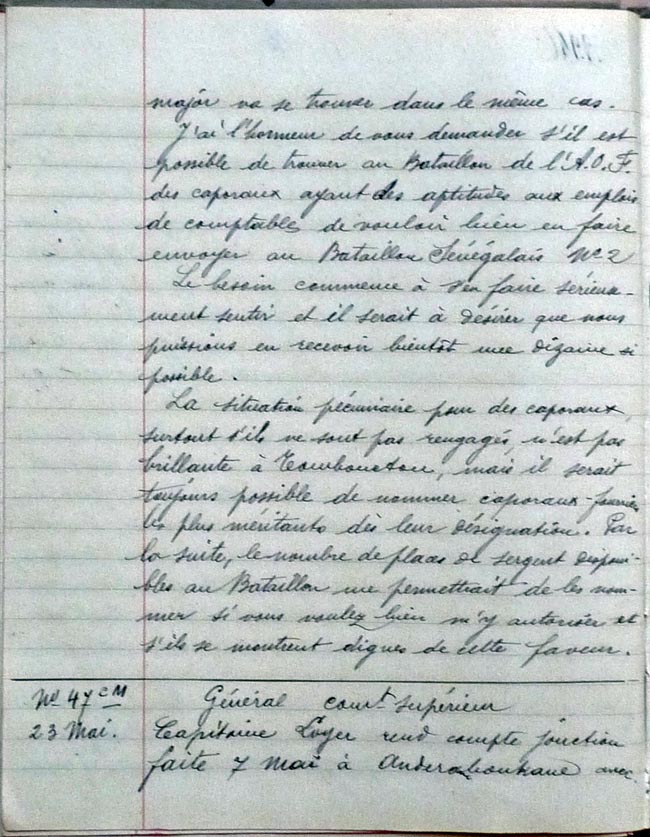 major va se trouver dans le même cas.
J'ai l'honneur de vous demander s'il est
possible de trouver au Bataillon de l'A.O.F.
des caporaux ayant des aptitudes aux emplois
de comptables de vouloir bien en faire
envoyer au Bataillon Sénégalais No 2
Le besoin commence à s'en faire sérieuse-
ment sentir et il serait à désirer que nous
puissions en recevoir bientôt une dizaine si
possible.
La situation pécuniaire pour des caporaux,
surtout s'ils ne sont pas rengagés, n'est pas
brillante à Tombouctou, mais il serait
toujours possible de nommer caporaux-fourriers
les plus méritants dès leur désignation. Par
la suite, le nombre de places de sergent disponi-
bles au Bataillon me permettrait de les nom-
mer si vous voulez bien m'y autoriser et
s'ils se montrent dignes de cette faveur.
No 47 CM Général comt supérieur
23 Mai. Capitaine Loyer rend compte jonction
faite 7 mai à Anderaboukane avec